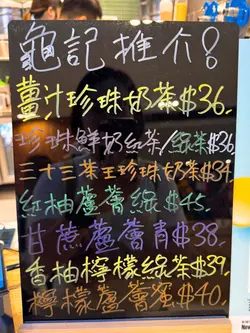 龜記推介!
薑汁珍珠奶茶$36.
珍珠鮮奶紅茶/綠茶$36.
三十三茶王珍珠奶茶$34.
紅柚蘆薈綠$45.
甘蔗蘆薈青$38.
香柚檸檬綠茶$39.
檸檬蘆薈蜜$40.